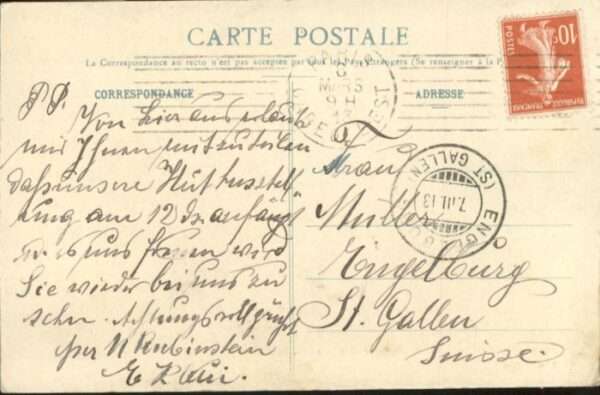 CARTE POSTALE
La Correspondance au recto n'est pas acceptée par tous les Pays Etrangers (Se renseigner à la P
CORRESPONDANCE
ADRESSE
P.P.
Von hier aus erlaube
mir Ihnen mitzuteilen
dass unsere Hutausstell
ung am 12 ds anfängt
u. es uns freuen wird
Sie wieder bei uns zu
sehn. Achtungsvoll grüsst
per N Rubinstein
E
Frau
Müller
Engelburg
St. Gallen
Suisse.
PARIS
MARS
EST
ENGELBURG
(ST GALLEN)
7.III.13
10c
POSTES
REPUBLIQUE FRANÇAISE